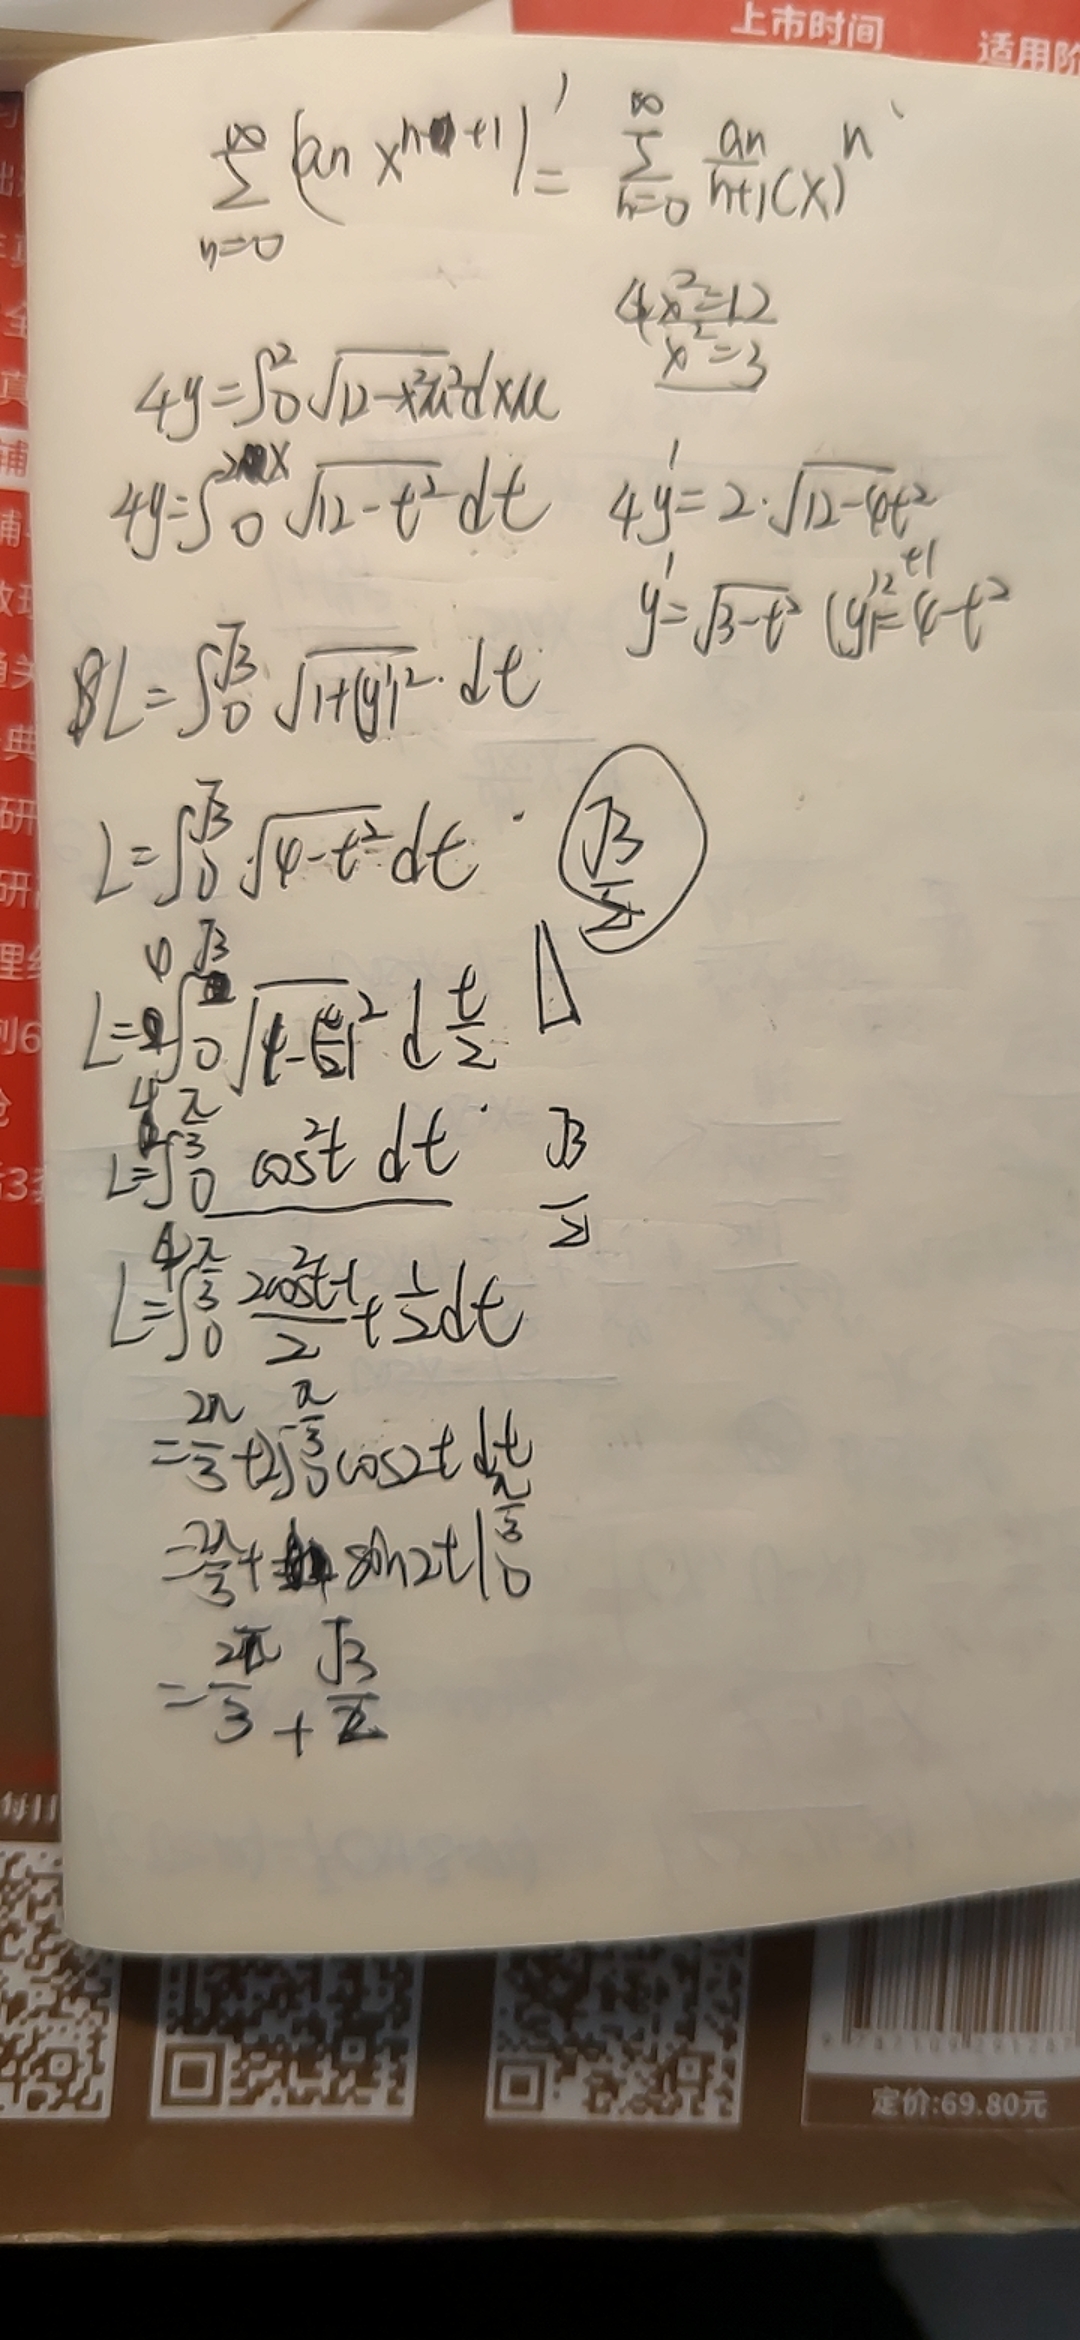 上市时间
适用阶
∞ ∑ n=0 (an x^{n+1})' = ∞ ∑ n=0 an/n+1 (x)^n
4x²=12
x²=3
4y=∫₀² √12-x²u² dxu
4y=∫₀^{2x} √12-t² dt
4y'=2·√12-4t²
y'=√3-t² (y')²+1=4-t²
L=∫₀^{√3} √1+(y')²·dt
L=∫₀^{√3} √4-t² dt
√3/2
L=4∫₀^{√3} √1-(t/2)² d t/2
L=4∫₀^{π/3} cos²t dt
√3/2
L=4∫₀^{π/3} 2cos²t-1/2 + 1/2 dt
=2π/3+2∫₀^{π/3} cos2t dt
=2π/3+ sin2t|₀^{π/3}
=2π/3+√3/2
定价:69.80元